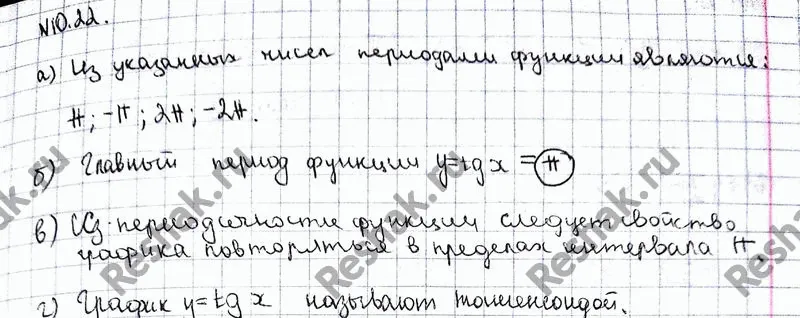 N10.22.
а) Из указанных чисел периодами функции являются:
π; -π; 2π; -2π.
б) Главный период функции y=tg x = π
в) Из периодичности функции следует свойство
графика повторяться в пределах интервала π.
г) График y=tg x называют тангенсоидой.
Reshak.ru